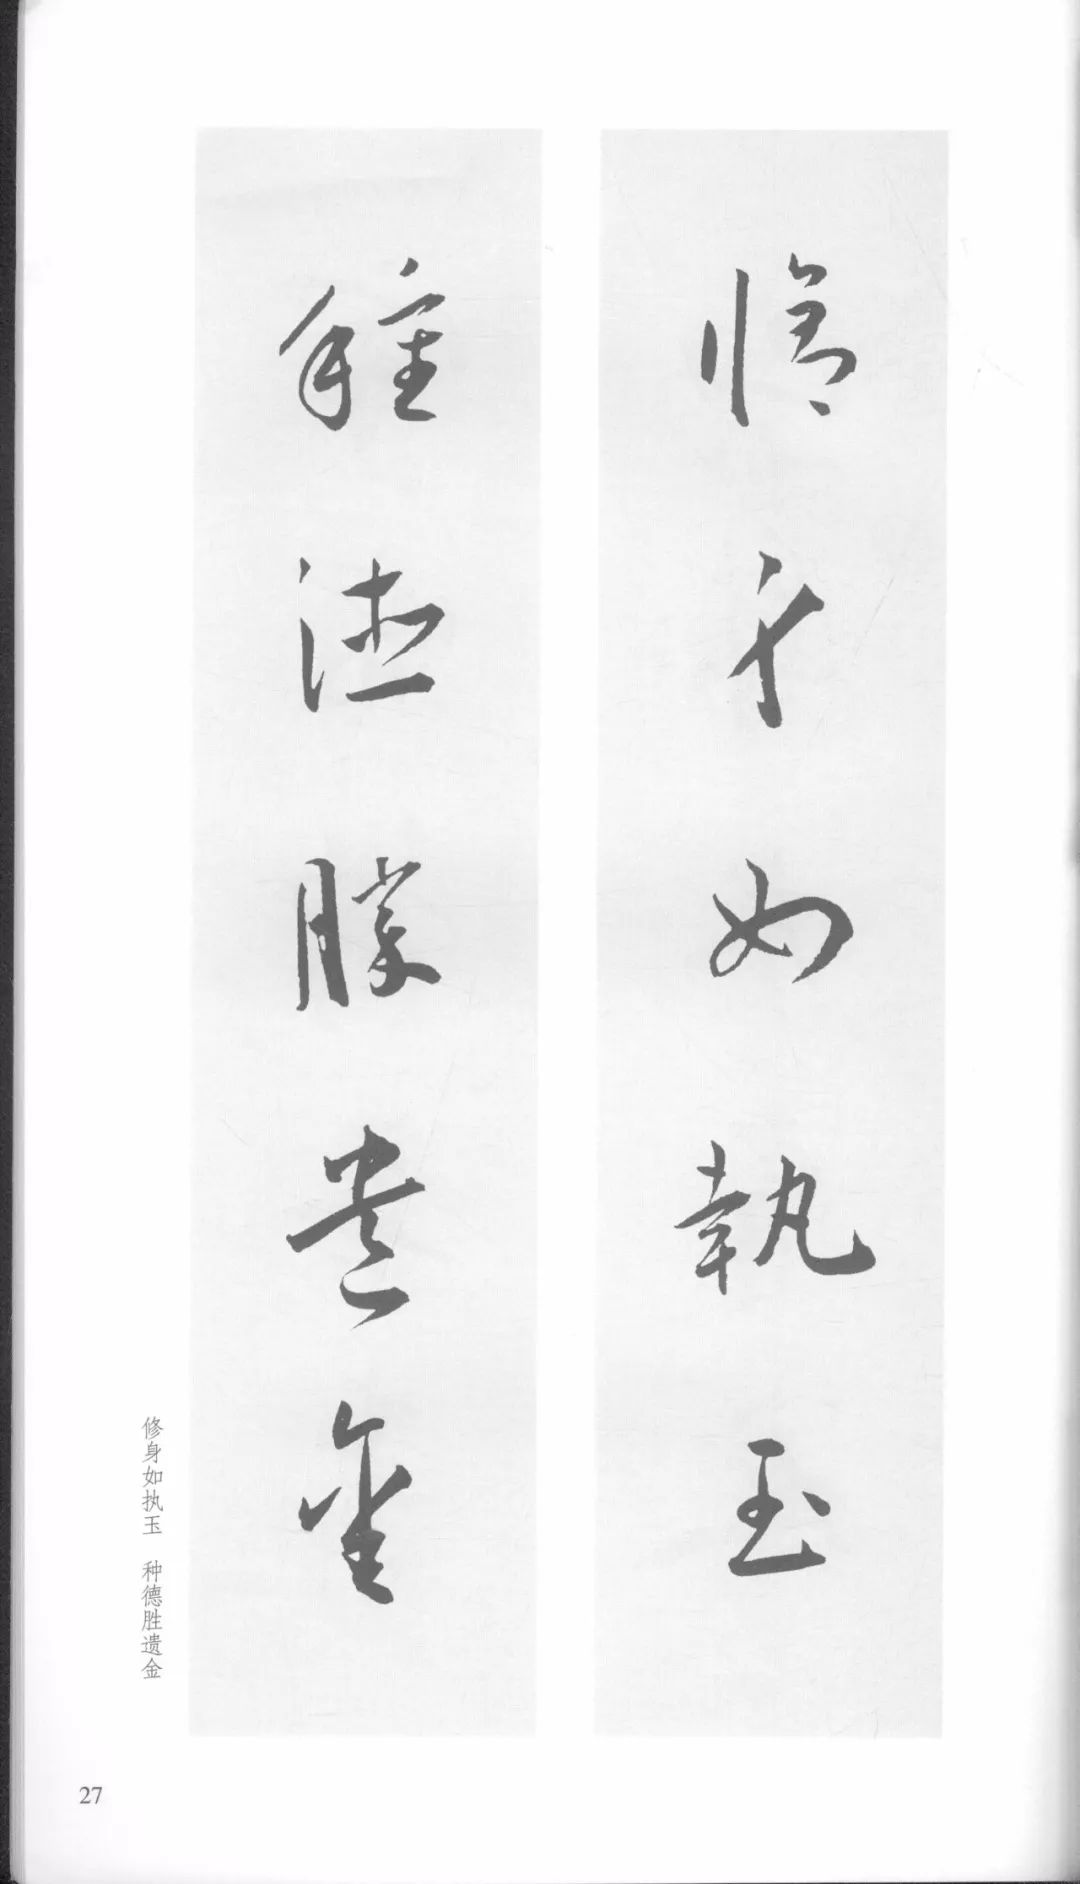 修身如執玉
種德勝遺金
修身如执玉 种德胜遗金
27